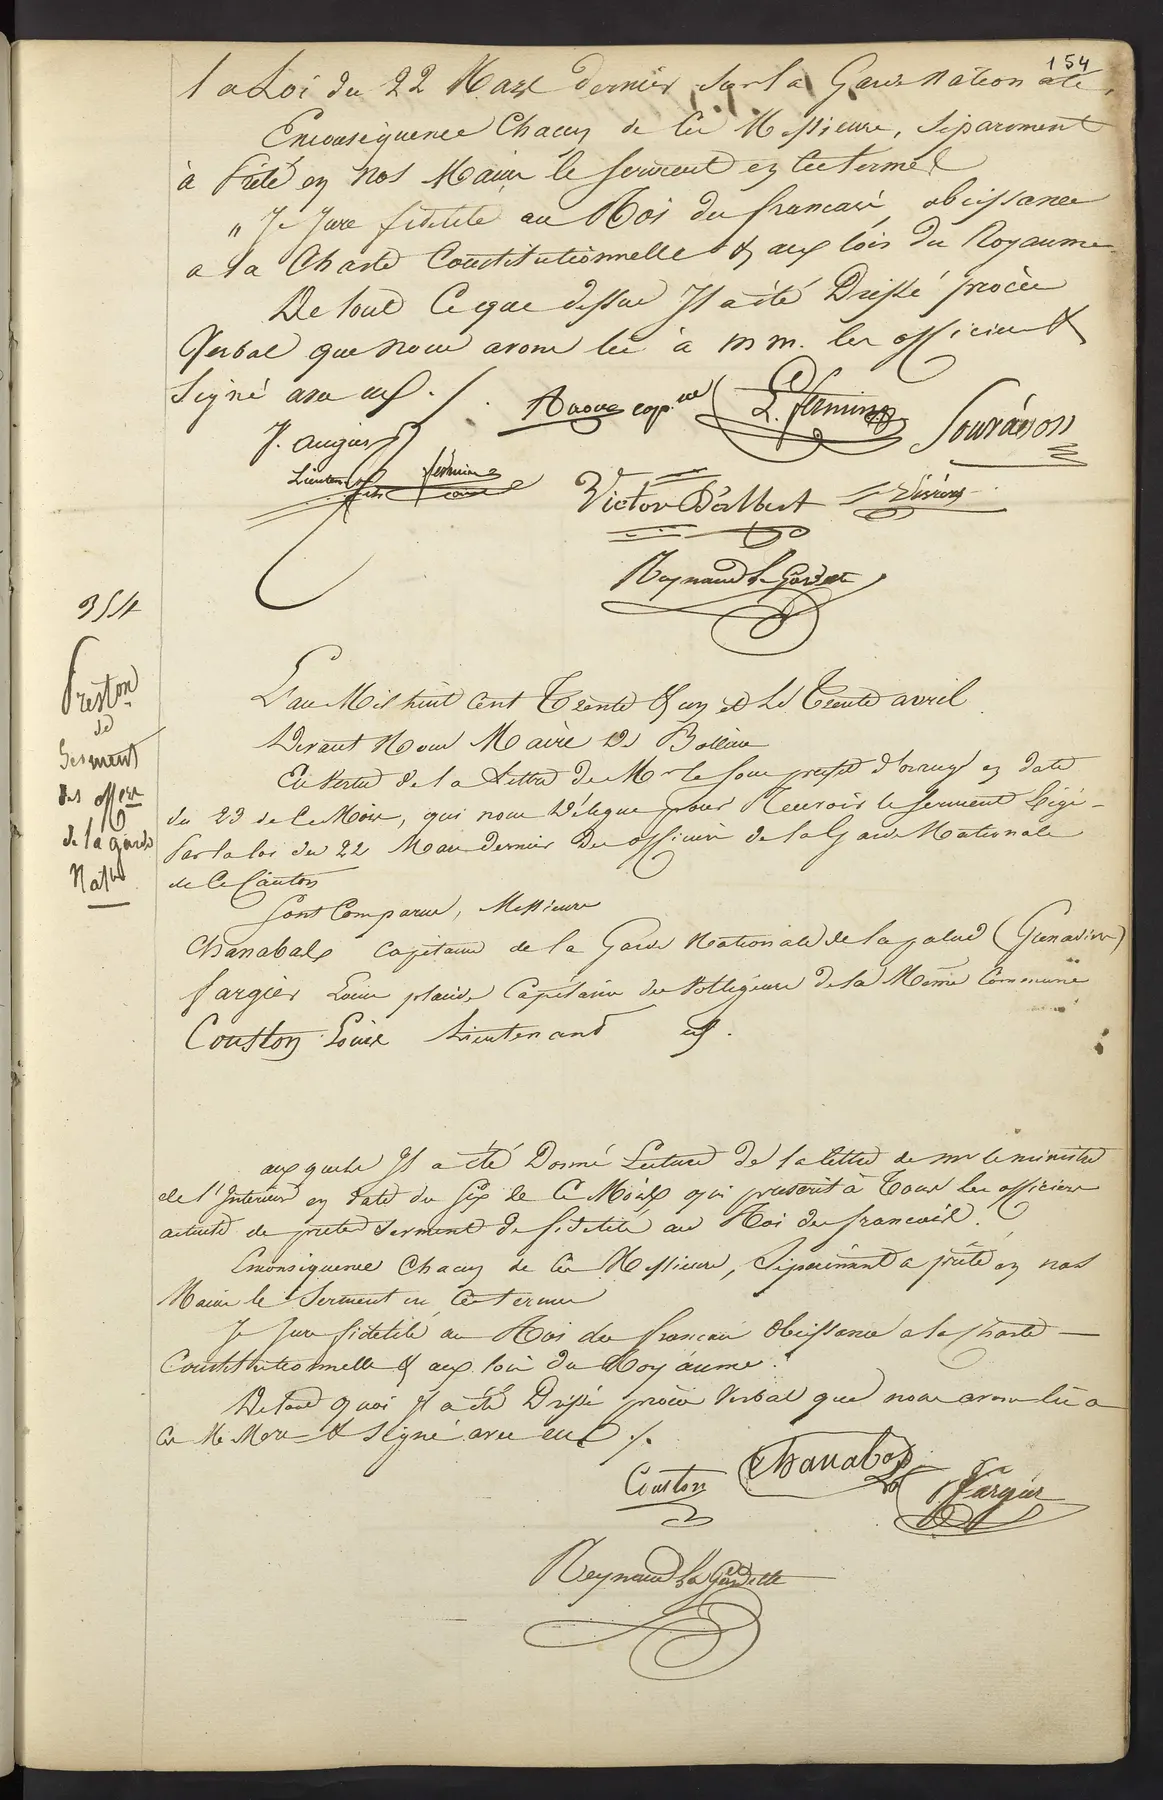 154
la Loi du 22 Mars dernier sur la Garde nationale,
En Conséquence Chacun de Ces Messieurs, séparement
à Prêté en Nos Mains le serment en Ces termes
" Je Jure fidélité au Roi des français, obéissance
a la Charte Constitutionnelle & aux lois du Royaume
De tout Ce que dessus Il a été Dressé procès
Verbal que nous avons lu à MM. les officiers &
signé avec eux ./.
cap.ne L. fermin Souvanon
J. augier
Lieutenant fermin
Victor D'Albert
Reynaud la Gardette
354
Preston
de
Serment
des offers
de la garde
Natle
L'an Mil huit Cent Trente & un et Le Trente avril
Devant Nous Maire De Bollène
En Vertu de la Lettre de Mr le sous prefet d'orange en date
du 23 de Ce Mois, qui nous Délègue pour Recevoir le serment Exigé
Par la loi du 22 Mars Dernier Des officiers de la Garde Nationale
de Ce Canton
Sont Comparus, Messieurs
Chanabas Capitaine de la Garde Nationale de la palud (Grenadiers)
fargier Louis placide Capitaine des Voltigeurs de la Même Commune
Couston Louis Lieutenant id.
aux quels Il a été Donné Lecture de la lettre de mr le ministre
de l'Interieur en date du six de Ce Mois qui prescrit à Tous les officiers
de preter serment de fidélité au Roi des français.
En Consequence Chacun de Ces Messieurs, Séparément a prêté en nos
Mains le Serment en Ces termes
Je Jure fidélité au Roi des français Obéissance a la Charte
Constitutionnelle & aux lois du Royaume.
De tout quoi Il a été Dressé procès Verbal que nous avons lu a
Ces Mrs & signé avec eux ./.
Couston Chanabas Fargier
Reynaud la Gardette